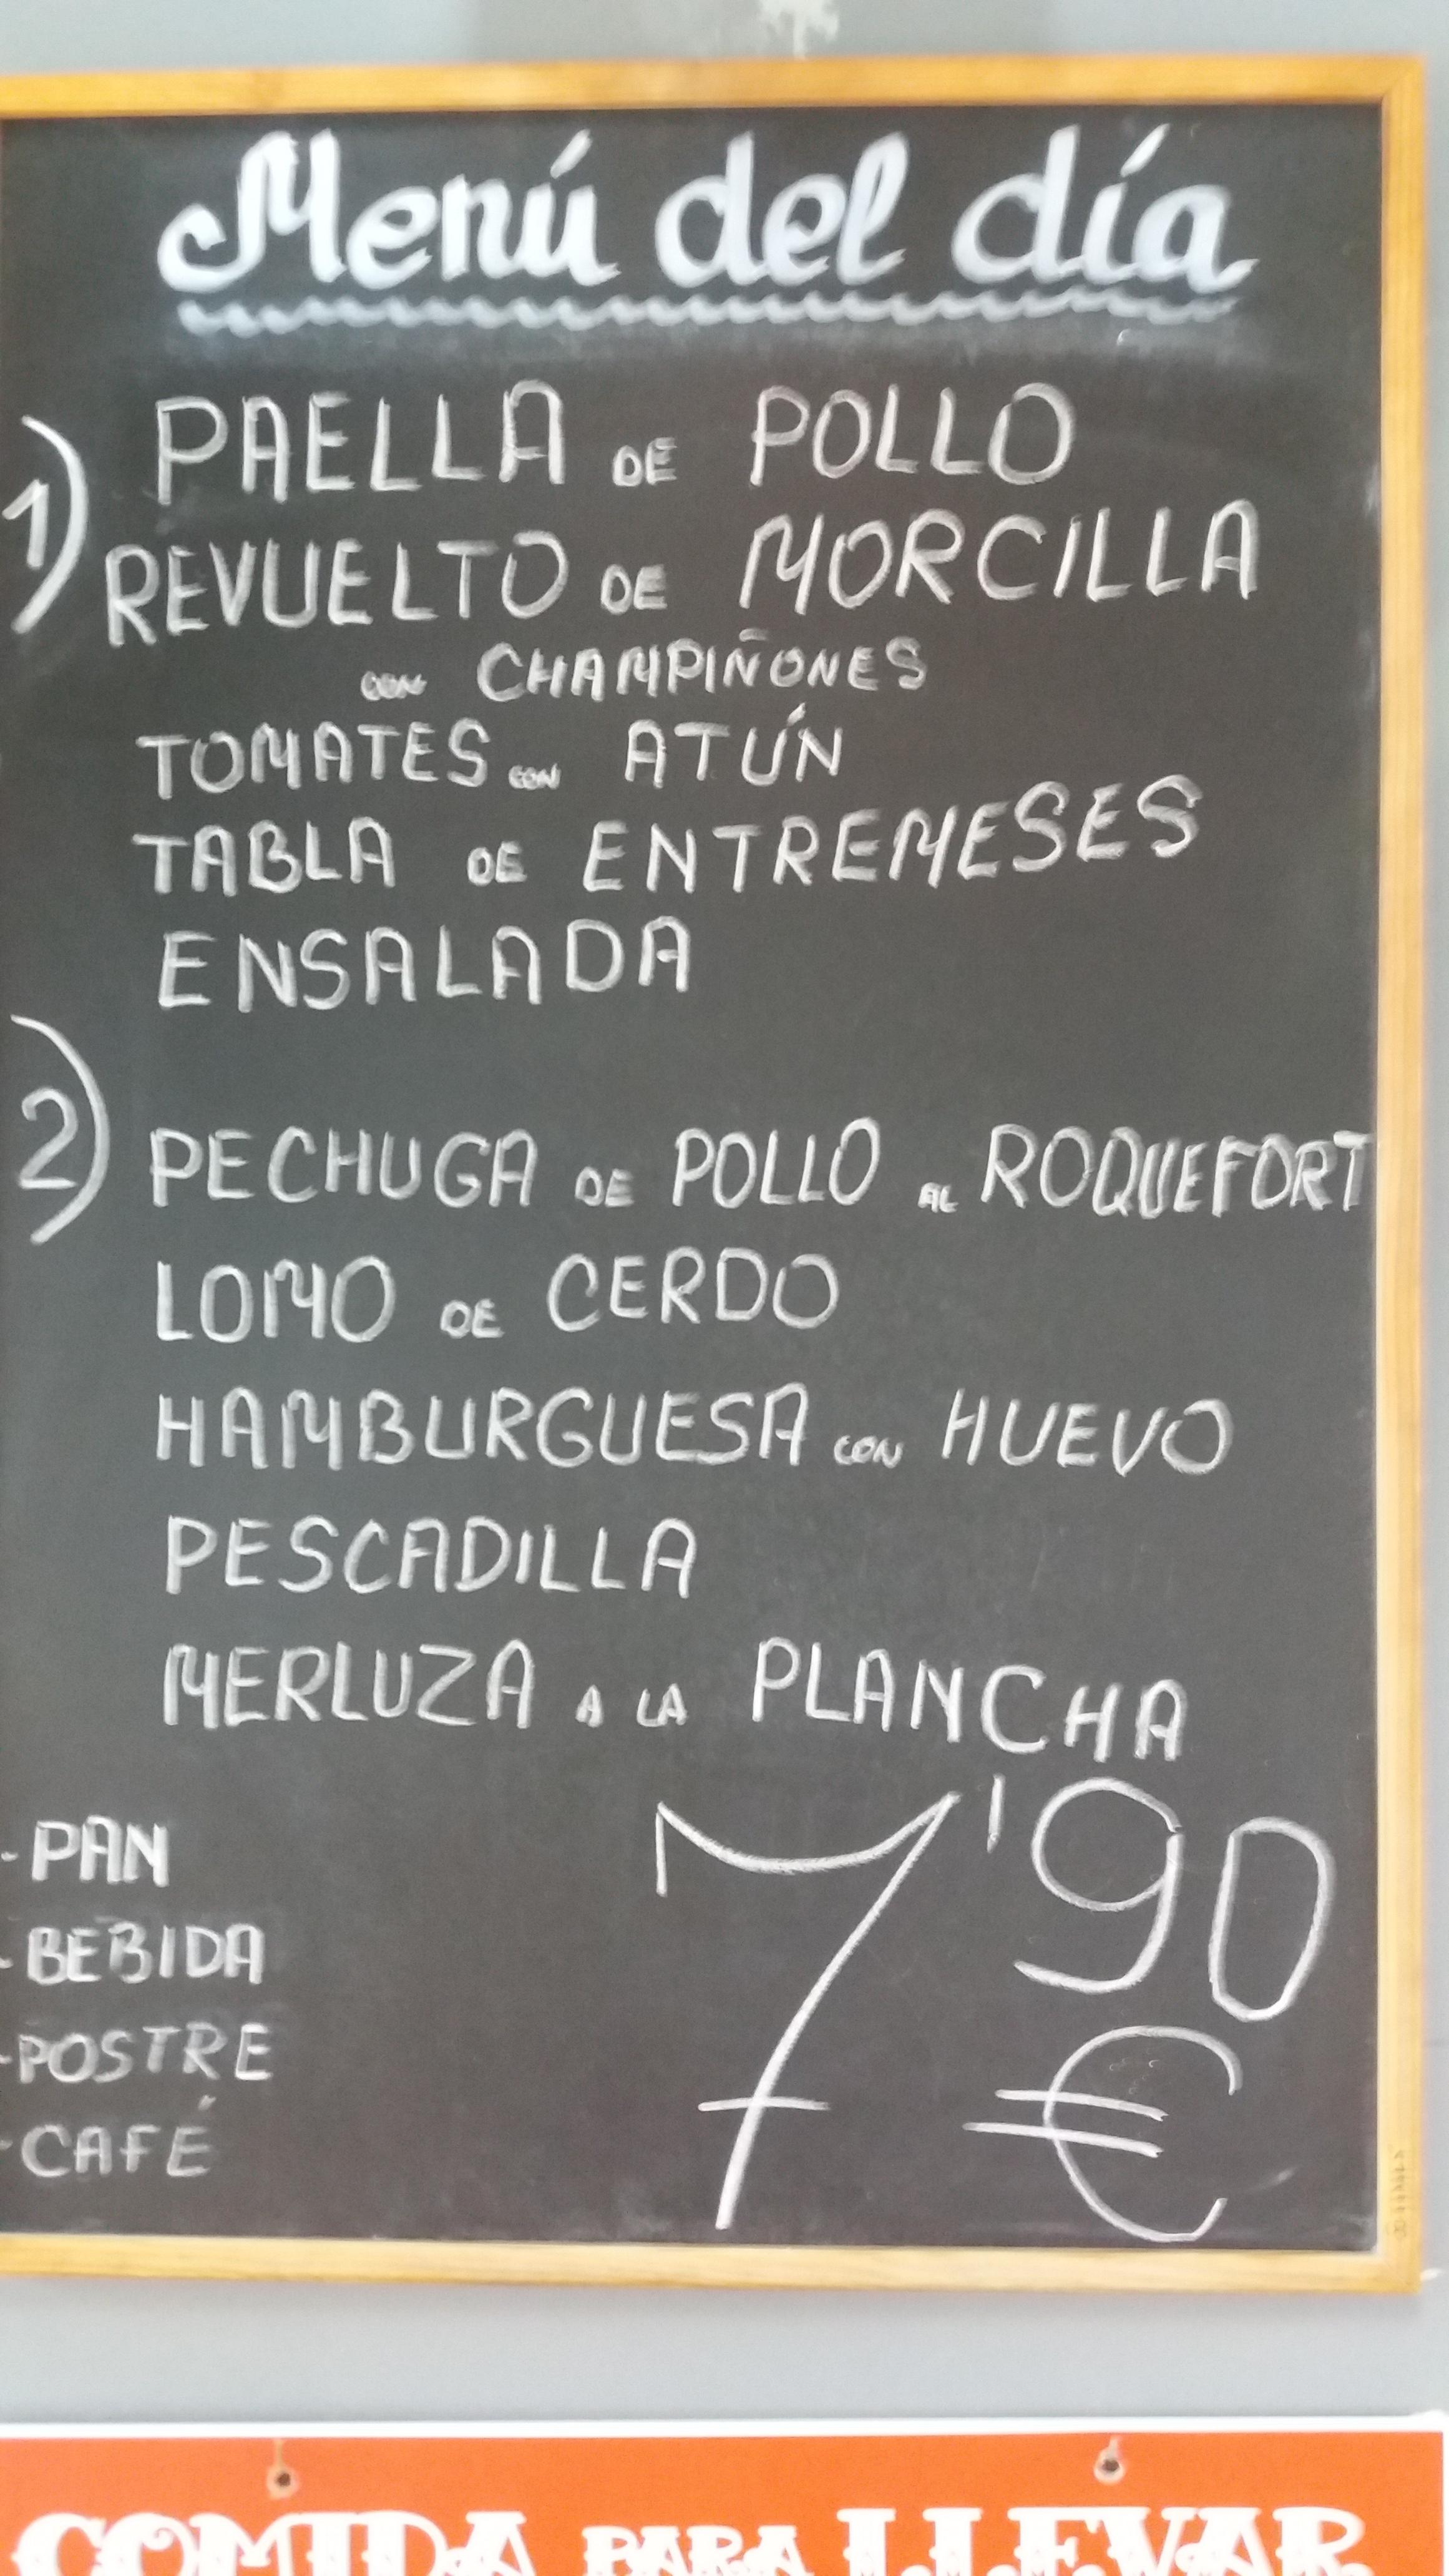 Menú del día
1) PAELLA DE POLLO
REVUELTO DE MORCILLA
CON CHAMPIÑONES
TOMATES CON ATÚN
TABLA DE ENTREMESES
ENSALADA
2) PECHUGA DE POLLO AL ROQUEFORT
LOMO DE CERDO
HAMBURGUESA CON HUEVO
PESCADILLA
MERLUZA A LA PLANCHA
- PAN
- BEBIDA
- POSTRE
- CAFÉ
7'90
€
COMIDA PARA LLEVAR